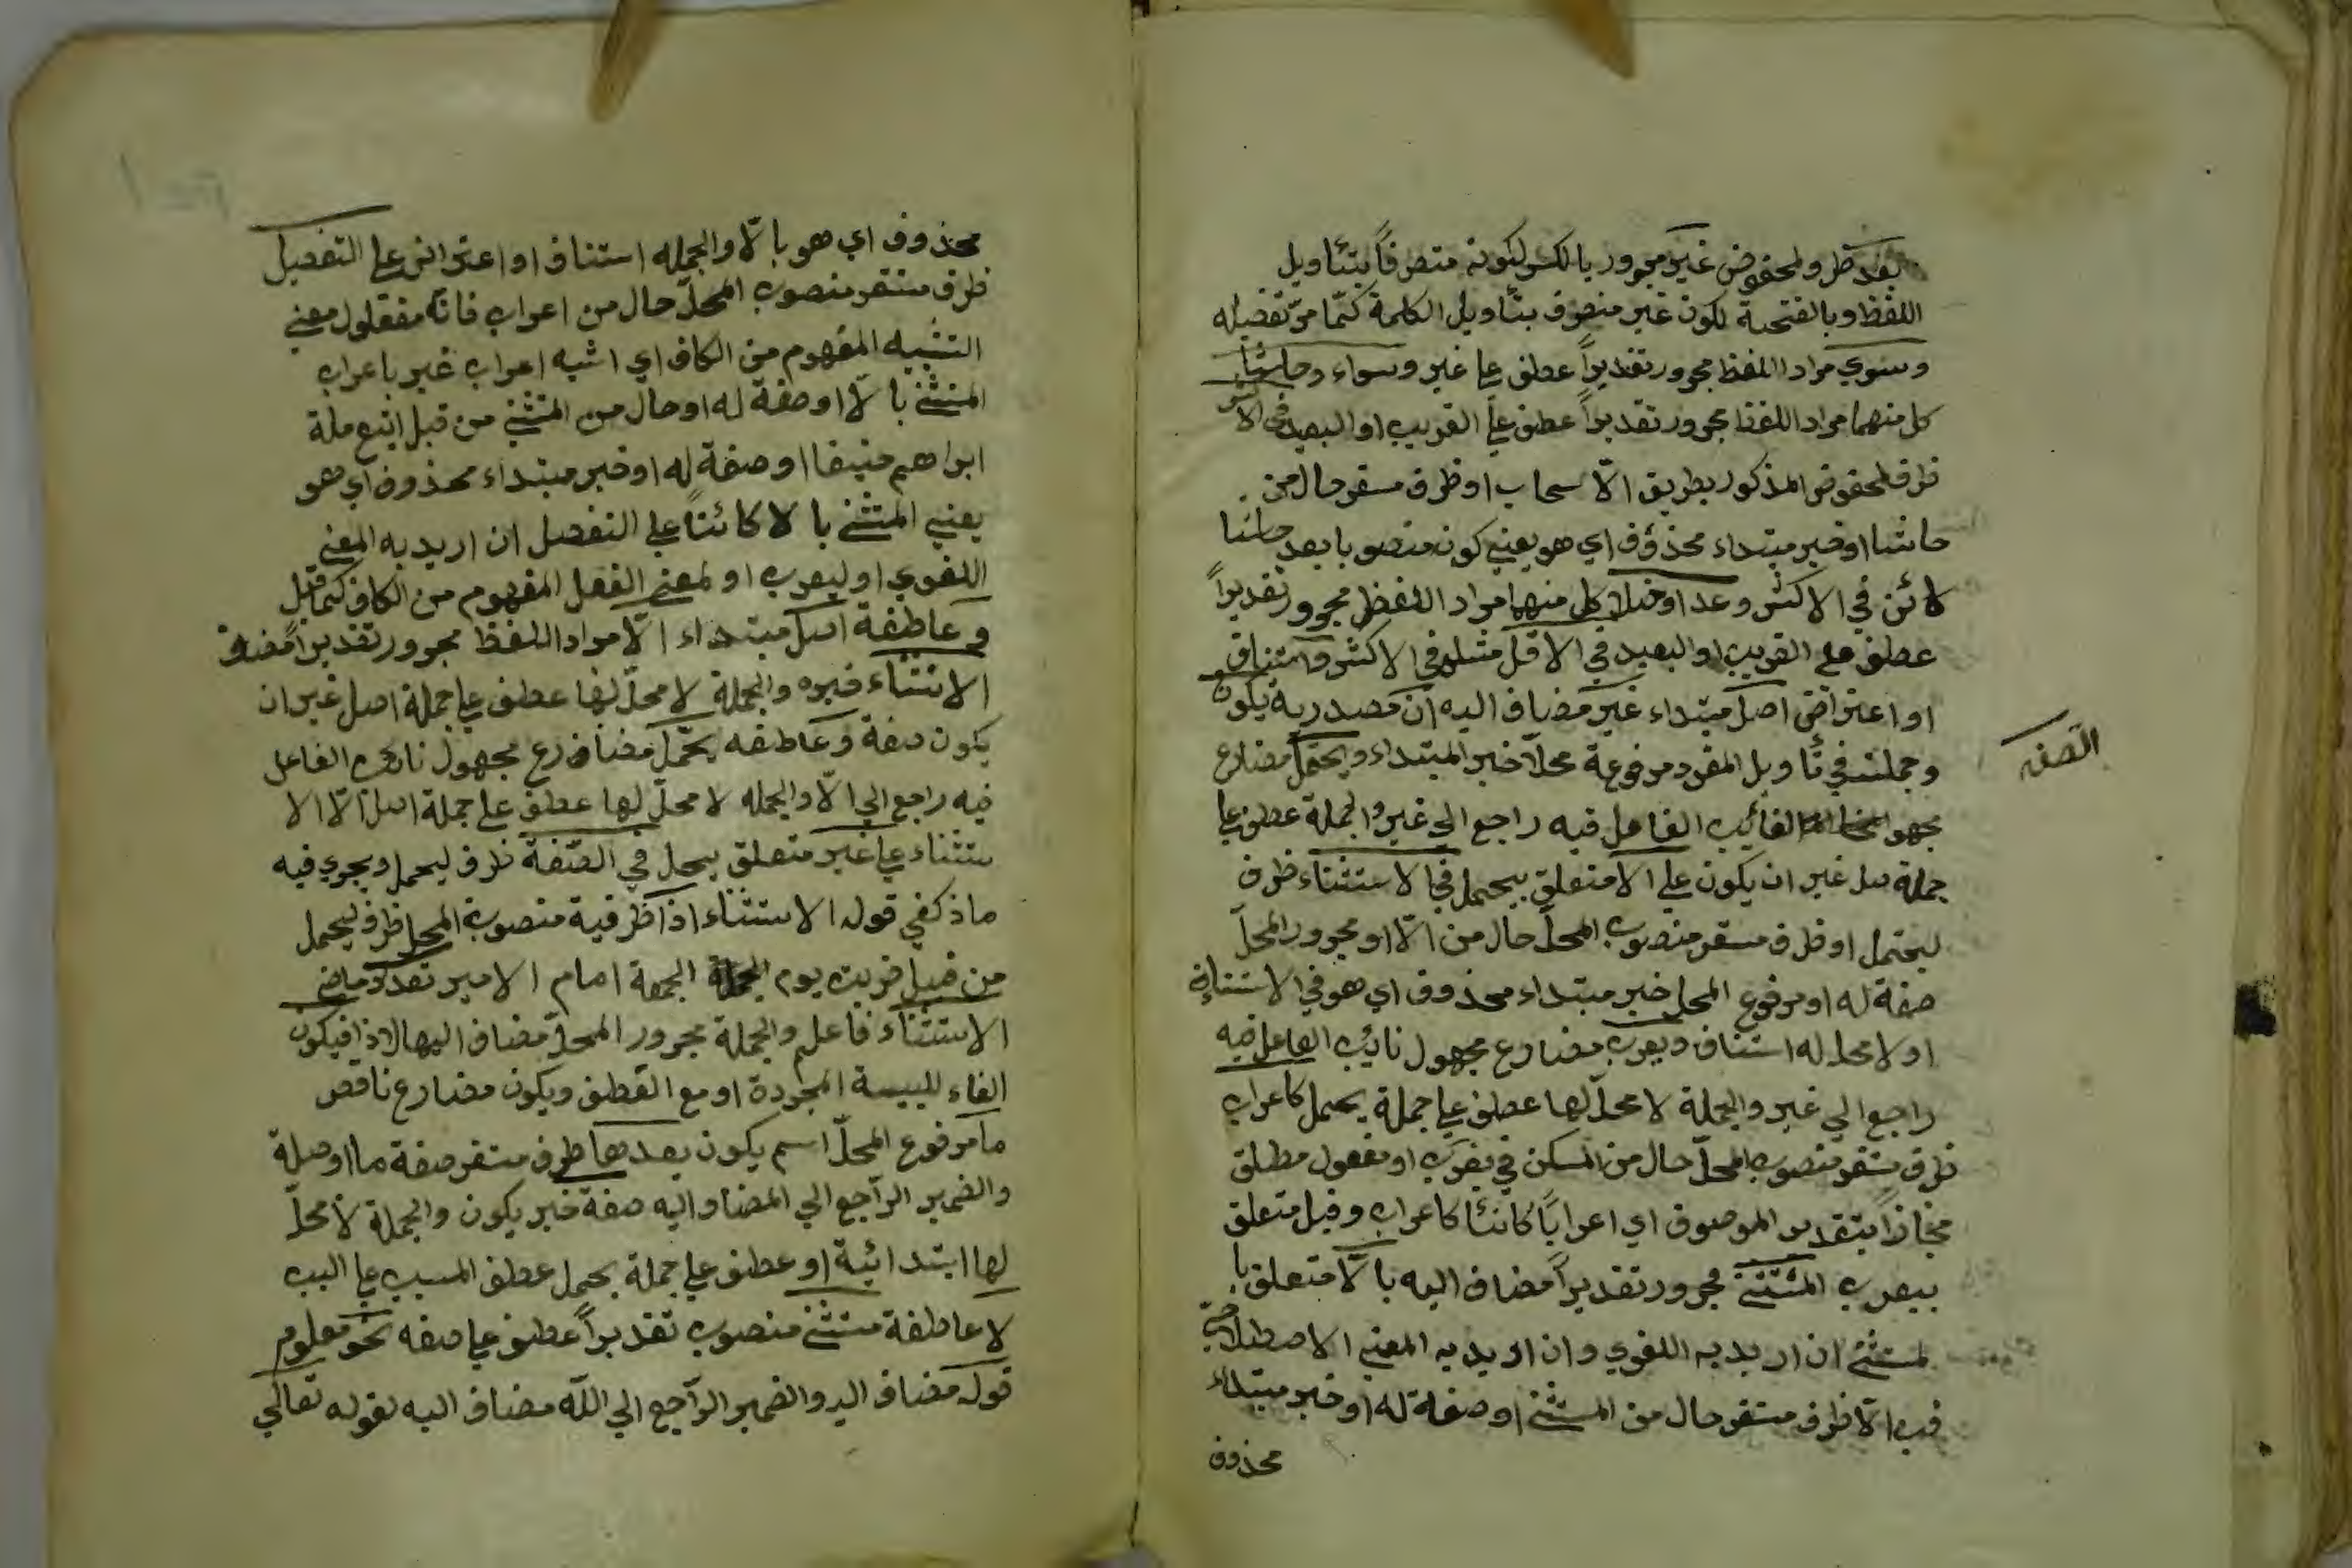 بعد ظرف ولمخفوض غير مجرور بالكسر لكونه متصرفاً بتأويل
اللفظ وبالفتحة لكون غير منصرف بتأويل الكلمة كما مرّ تفصيله
وسوي مراد اللفظ مجرور تقديراً عطف علي غير وسواء وحاشا
كل منهما مراد اللفظ مجرور تقديراً عطف علي القريب او البعيد في الاكثر
ظرف لمخفوض المذكور بطريق الانسحاب او ظرف مستقر حال من
حاشا او خبر مبتداء محذوف اي هو يعني كون منصوبا بعد حاشا
كائن في الاكثر وعدا وخلا كل منهما مراد اللفظ مجرور تقديراً
عطف علي القريب او البعيد في الاقل مثله في الاكثر واستيناف
او اعتراض اصل مبتداء غير مضاف اليه ان مصدرية يكون
وجملته في تأويل المفرد مرفوعة محلّا خبر المبتداء ويحمل مضارع
مجهول الغائب الفاعل فيه راجع الي غير والجملة عطف علي
جملة اصل غير ان يكون علي الا متعلق بيحمل في الاستثناء ظرف
ليحتمل او ظرف مستقر منصوب المحلّ حال من الّا او مجرور المحلّ
صفة له او مرفوع المحل خبر مبتداء محذوف اي هو في الاستثناء
او لا محل له استناف ويعرب مضارع مجهول نائب الفاعل فيه
راجع الي غير والجملة لا محلّ لها عطف علي جملة يحمل كاعراب
ظرف مستقر منصوب المحلّ حال من المسكن في يعرب او مفعول مطلق
مجازاً بتقدير الموصوف اي اعراباً كائنا كاعراب وقيل متعلق
بيعرب المستثني مجرور تقديراً مضاف اليه بالّا متعلق با
لمستثني ان اريد به اللغوي وان اريد به المعني الاصطلاحي
فب الّا ظرف مستقر حال من المستثني او صفة له او خبر مبتداء
محذوف
الصفه
محذوف اي هو بالّا والجمله استناف او اعتراض علي التفصيل
ظرف مستقر منصوب المحلّ حال من اعراب فانّه مفعول معني
التشبيه المفهوم من الكاف اي اشبه اعراب غير باعراب
المستثني بالّا او صفة له او حال من المستثني من قبل اتبع ملة
ابراهيم حنيفا او صفة له او خبر مبتداء محذوف اي هو
يعني المستثني بالا كائناً علي التفصيل ان اريد به المعني
اللغوي او ليعرب او لمعني الفعل المفهوم من الكاف كما قيل
و عاطفة اصل مبتداء الّا مراد اللفظ مجرور تقديراً مضاف
الاستثناء خبره والجملة لا محلّ لها عطف علي جملة اصل غير ان
يكون صفة و عاطفه يحمل مضارع مجهول نائب الفاعل
فيه راجع الي الّا والجمله لا محلّ لها عطف علي جملة اصل الّا الا
ستثناء علي غير متعلق بيحمل في الصّفة ظرف ليحمل ويجري فيه
ما ذكر في قوله الاستثناء اذا ظرفية منصوب المحل ظرف ليحمل
من قبيل ضربت يوم الجمعة امام الامير تعذر ماضي
الاستثناء فاعله والجملة مجرور المحلّ مضاف اليها لاذا فيكون
الفاء للسببية المجردة او مع العطف ويكون مضارع ناقص
ما مرفوع المحلّ اسم يكون بعدها ظرف مستقر صفة ما او صلة
والضمير الرّاجع الي المضاف اليه صفة خبر يكون والجملة لا محلّ
لها ابتدائية او عطف علي جملة يحمل عطف المسبب علي السبب
لا عاطفة مستثني منصوب تقديراً عطف علي صفه نحو معلوم
قوله مضاف اليه والضمير الرّاجع الي اللّه مضاف اليه لقوله تعالي